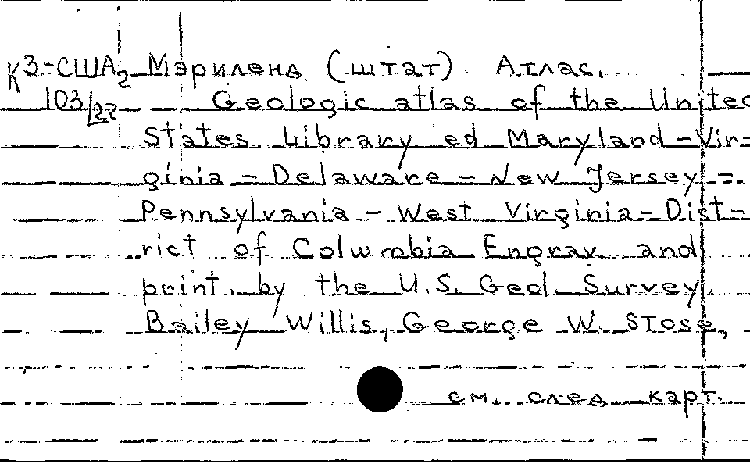 К3-США2 Мэриленд (штат). Атлас.
103/27 Geologic atlas of the United
States Library ed Maryland-Vir-
ginia-Delaware-New Jersey-
Pennsylvania-West Virginia-Dist-
rict of Columbia Engrav. and
print. by the U.S. Geol. Survey.
Bailey Willis, George W. Stose,
см. след карт.